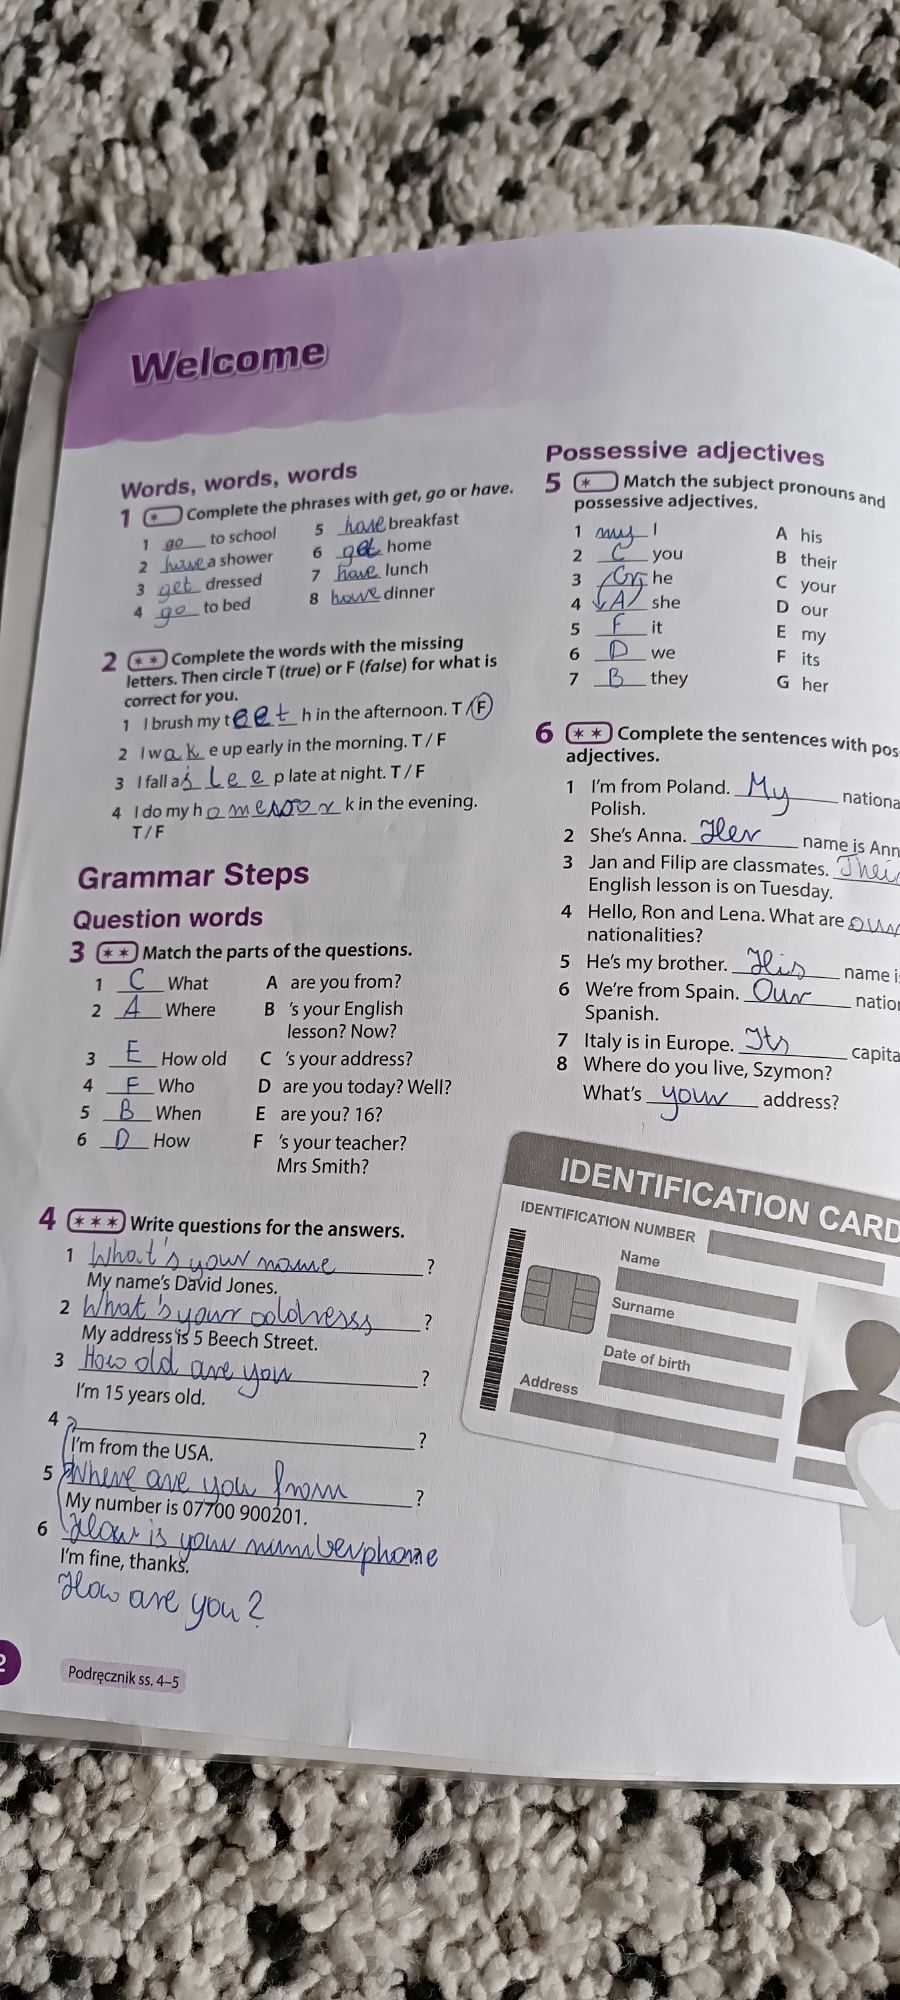 Welcome
Words, words, words
1 * Complete the phrases with get, go or have.
1 go to school
2 have a shower
3 get dressed
4 go to bed
5 have breakfast
6 get home
7 have lunch
8 have dinner
2 ** Complete the words with the missing
letters. Then circle T (true) or F (false) for what is
correct for you.
1 I brush my t e e t h in the afternoon. T / F
2 I w a k e up early in the morning. T / F
3 I fall a s l e e p late at night. T / F
4 I do my h o m e w o r k in the evening.
T / F
Grammar Steps
Question words
3 ** Match the parts of the questions.
1 C What
2 A Where
3 E How old
4 F Who
5 B When
6 D How
A are you from?
B 's your English
lesson? Now?
C 's your address?
D are you today? Well?
E are you? 16?
F 's your teacher?
Mrs Smith?
4 *** Write questions for the answers.
1 What's your name ?
My name's David Jones.
2 What's your addresss ?
My address is 5 Beech Street.
3 How old are you ?
I'm 15 years old.
4 ?
I'm from the USA.
5 Where are you from ?
My number is 07700 900201.
6 How is your numberphone ?
I'm fine, thanks.
How are you?
2
Podręcznik ss. 4–5
Possessive adjectives
5 * Match the subject pronouns and
possessive adjectives.
1 my I
2 C you
3 G he
4 A she
5 F it
6 D we
7 B they
A his
B their
C your
D our
E my
F its
G her
6 ** Complete the sentences with pos
adjectives.
1 I'm from Poland. My nationa
Polish.
2 She's Anna. Her name is Ann
3 Jan and Filip are classmates. Thei
English lesson is on Tuesday.
4 Hello, Ron and Lena. What are our
nationalities?
5 He's my brother. His name i
6 We're from Spain. Our natio
Spanish.
7 Italy is in Europe. Its capita
8 Where do you live, Szymon?
What's your address?
IDENTIFICATION CARD
IDENTIFICATION NUMBER
Name
Surname
Date of birth
Address